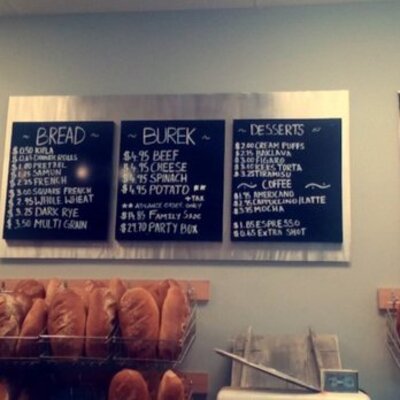 ~ BREAD ~
$0.50 KIFLA
$0.65 DINNER ROLLS
$1.00 PRETZEL
SAMUN
$ 2.25 FRENCH
$ 3.00 SQUARE FRENCH
$ 2.95 WHOLE WHEAT
$ 3.25 DARK RYE
$ 3.50 MULTI GRAIN
~ BUREK ~
$4.95 BEEF
$4.95 CHEESE
$4.95 SPINACH
$4.95 POTATO **
+TAX
** ADVANCE ORDER ONLY
FAMILY SIZE
$29.70 PARTY BOX
~ DESSERTS ~
$2.00 CREAM PUFFS
BAKLAVA
$3.00 FIGARO
TORTA
$3.25 TIRAMISU
~ COFFEE ~
AMERICANO
$2.95 CAPPUCCINO/LATTE
MOCHA
$1.85 ESPRESSO
$0.65 EXTRA SHOT